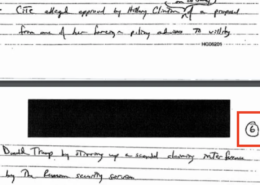 CITE alleged approved by Hillary Clinton a proposal
from one of her foreign policy advisors to vilify
⑥
Donald Trump by stirring up a scandal claiming interference
by the Russian security services